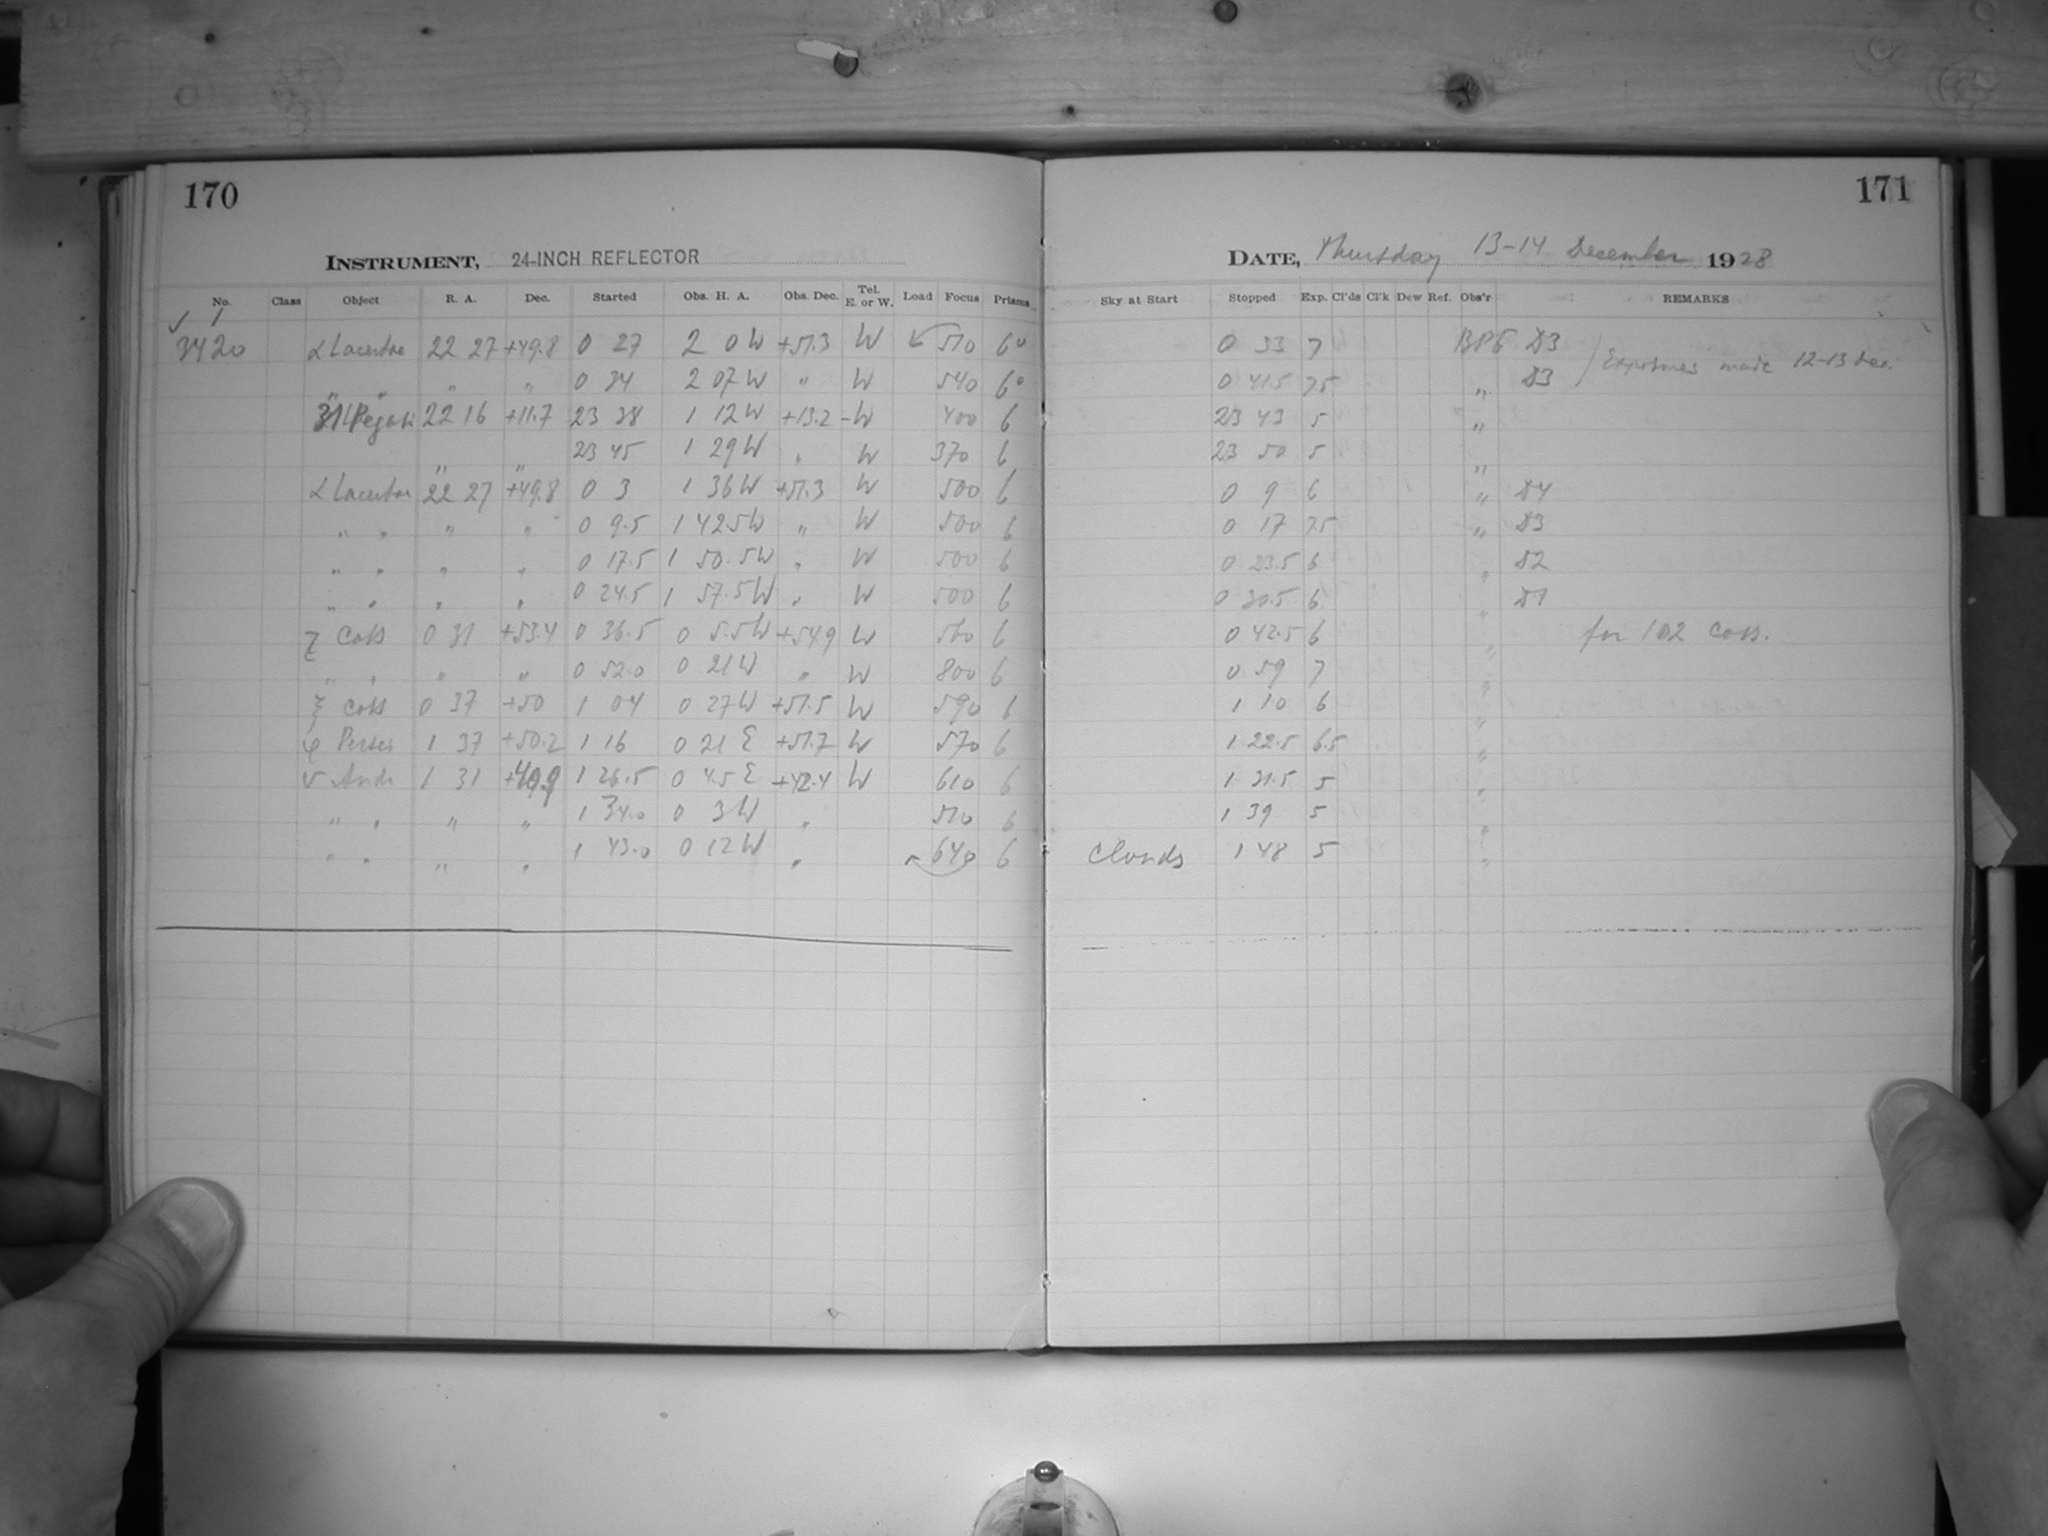 170
171
INSTRUMENT, 24-INCH REFLECTOR
DATE, Thursday 13-14 December 1928
No. Class Object R. A. Dec. Started Obs. H. A. Obs. Dec. Tel. E. or W. Load Focus Prisms Sky at Start Stopped Exp. Cl'ds Cl'k Dew Ref. Obs'r REMARKS
3420 α Lacertae 22 27 +49.8 0 27 2 0W +51.3 W 510 60 0 33 7 D3 Exposures made 12-13 Dec.
" " " " 0 34 2 07W " W 540 60 0 41.5 7.5 " D3
31 Pegasi 22 16 +11.7 23 38 1 12W +13.2 W 400 6 23 43 5 "
" " 23 45 1 29W " W 370 6 23 50 5 "
α Lacertae 22 27 +49.8 0 3 1 36W +51.3 W 500 6 0 9 6 " D4
" " " " 0 9.5 1 42.5W " W 500 6 0 17 7.5 " D3
" " " " 0 17.5 1 50.5W " W 500 6 0 23.5 6 " D2
" " " " 0 24.5 1 57.5W " W 500 6 0 30.5 6 " D1
ζ Cass 0 31 +53.4 0 36.5 0 5.5W +54.9 W 560 6 0 42.5 6 " for 102 Cass.
" " " " 0 52.0 0 21W " W 800 6 0 59 7 "
ξ Cass 0 37 +50 1 04 0 27W +51.5 W 590 6 1 10 6 "
φ Persei 1 37 +50.2 1 16 0 21 E +51.7 W 570 6 1 22.5 6.5 "
υ Andr 1 31 +40.9 1 26.5 0 4.5 E +42.4 W 610 6 1 31.5 5 "
" " " " 1 34.0 0 3W " 510 6 1 39 5 "
" " " " 1 43.0 0 12W " 640 6 Clouds 1 48 5 "